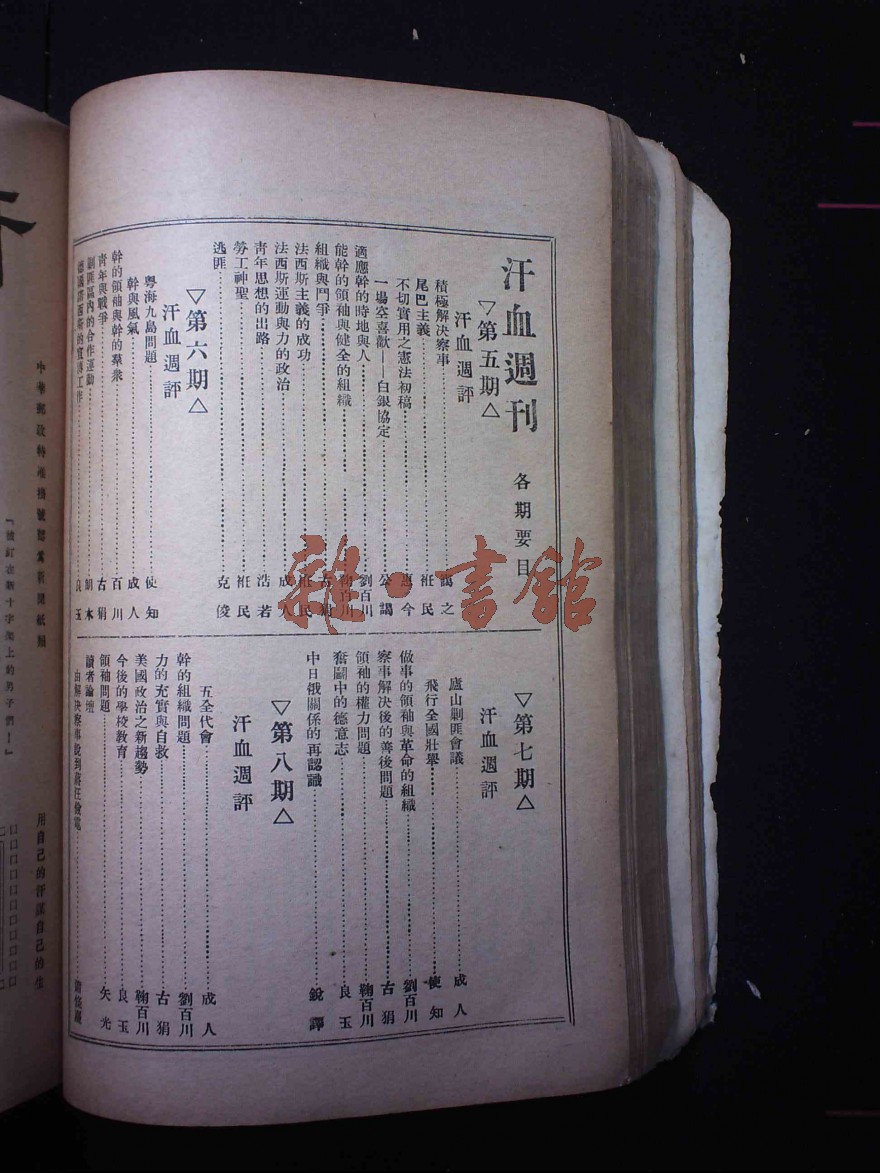 汗血週刊 各期要目
▽第五期△
汗血週評
積極解決察事 謁之
尾巴主義 枉民
不切實用之憲法初稿 惠今
一場空喜歡——白銀協定 公謁
適應幹的時地與人 劉百川
能幹的領袖與健全的組織 鞠百川
組織與鬥爭 古狷
法西斯主義的成功 枉民
法西斯運動與力的政治 成人
青年思想的出路 浩若
勞工神聖 枉民
逃匪 克俊
▽第六期△
汗血週評
粵海九島問題 使知
幹與風氣 成人
幹的領袖與幹的羣衆 百川
青年與戰爭 古狷
剿匪區內的合作運動
良玉
▽第七期△
汗血週評
廬山剿匪會議 成人
飛行全國壯舉 使知
做事的領袖與革命的組織 劉百川
察事解決後的善後問題 古狷
領袖的權力問題 鞠百川
奮鬬中的德意志 良玉
中日俄關係的再認識 銳譯
▽第八期△
汗血週評
五全代會 成人
幹的組織問題 劉百川
力的充實與自救 古狷
美國政治之新趨勢 鞠百川
今後的學校教育 良玉
領袖問題 矢光
讀者論壇
由解決察事說到蔣汪儉電
中華郵政特准掛號認爲新聞紙類
「被釘在數十字架上的男子們！」
用自己的汗謀自己的生
雜·書館